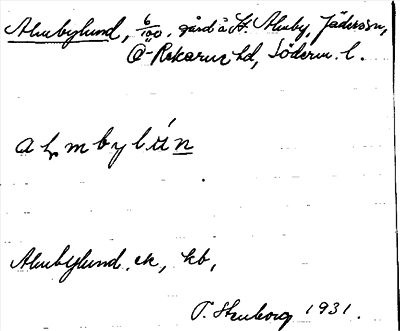 Almbylund, 6/100. gård å St. Almby, Jädersn,
Ö-Rekarne hd, Söderm. l.
almbylún
Almbylund. ek, kb,
1931.